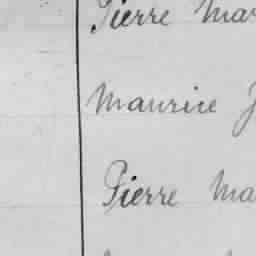 Pierre Mar
Maurice J
Pierre Ma